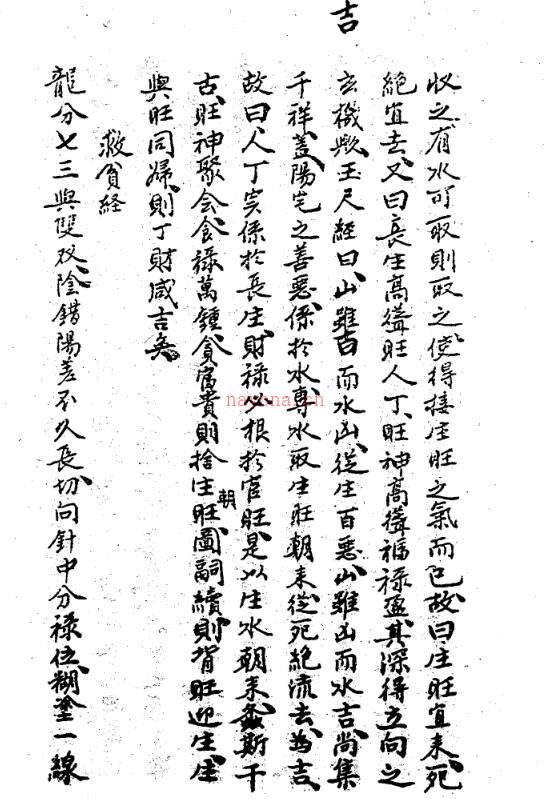 吉
收之有水可取則取之使得接生旺之氣而已故曰生旺宜来死
絕宜去又曰長生高聳旺人丁旺神高聳福祿盈其深得立向之
玄機欤玉尺經曰山雖吉而水凶從生百惡山雖凶而水吉尚集
千祥蓋陽宅之善惡係於水專水取生旺朝来從死絕流去為吉
故曰人丁实係於長生財祿必根於官旺是以生水朝来螽斯千
古旺神聚会食祿萬鍾貪富貴則捨生朝旺圖嗣續則背旺迎生生
與旺同歸則丁財咸吉矣
救貧経
龍分七三與雙双陰錯陽差不久長切向針中分祿位糊塗一線
nayona.cn